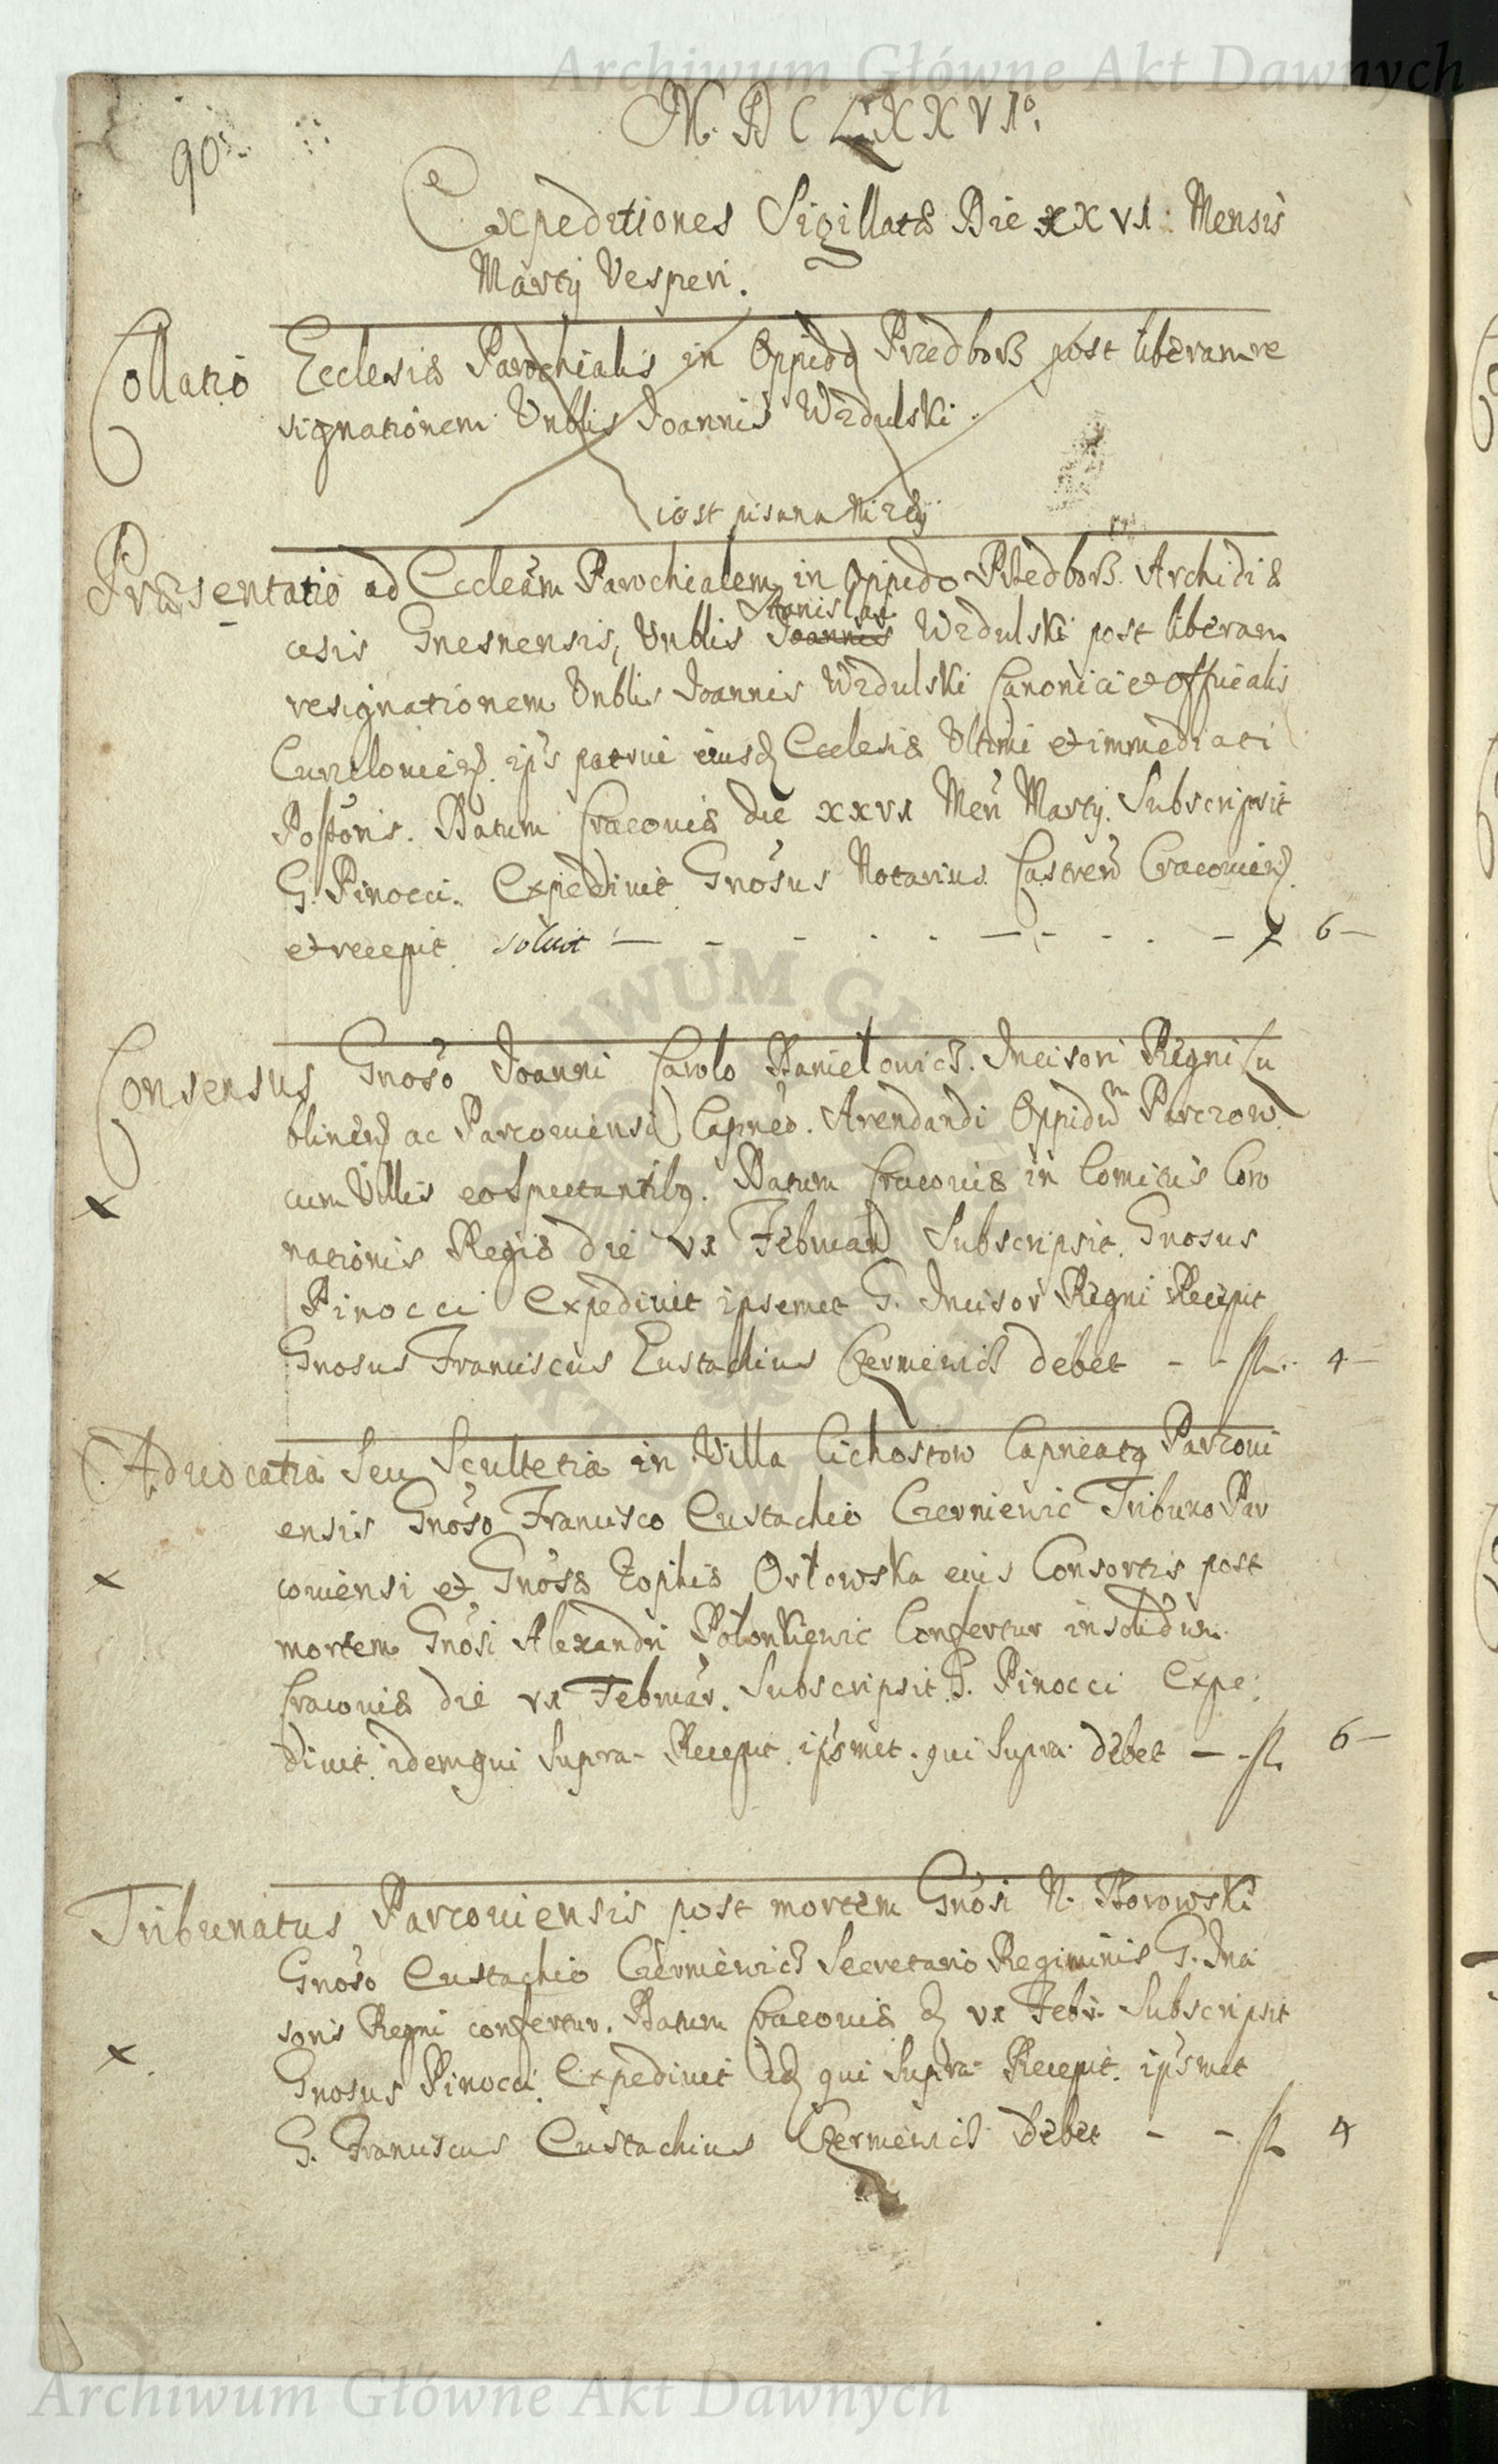 Archiwum Główne Akt Dawnych
90
M. D C LXXVI°
Expeditiones Sigillatæ Die XXVI. Mensis
Martij Vesperi.
Collatio Ecclesiæ Parochialis in Oppido Przedborz post liberam re
signationem Vnblis Joannis Wzdulski.
iest pisana niżey
Præsentatio ad Eccleãm Parochialem in Oppido Przedborz. Archidiæ
cesis Gnesnensis, Vnblis Joannis Stanislai Wzdulski post liberam
resignationem Vnblis Joannis Wzdulski Canonici et Officialis
Curzelouien. ips patrui eiusd Ecclesiæ Vltimi et immediati
Possoris. Datum Cracouiæ die XXVI Men Martij. Subscripsit
G. Pinocci. Expediuit Gnosus Notarius Castren Cracouien.
et recepit soluit 6
Consensus Gnoso Joanni Carolo Daniełowicz. Incisori Regni Lu
blinen ac Parcouiensi Capneo. Arendandi Oppidum Parczow
cum Villis eo Spectantibq. Datum Cracouiæ in Comitiis Coro
nationis Regiæ die VI Februar Subscripsit. Gnosus
Pinocci Expediuit ipsemet G. Incisor Regni Recepit
Gnosus Franciscus Eustachius Czerniewicz debet - - fl. 4
Aduocatia Seu Scultetia in Villa Cichostow Capneatq Parcoui
ensis Gnoso Francisco Eustachio Czerniewic Tribuno Par
couiensi et Gnosæ Zophiæ Orłowska eius Consortis post
mortem Gnosi Alexandri Połonkiewic Confertur in solidum.
Cracouiæ die VI Februar. Subscripsit G. Pinocci Expe
diuit idem qui Supra Recepit ipsmet qui Supra debet - fl 6
Tribunatus Parcouiensis post mortem Gnosi N. Borowski
Gnoso Eustachio Czerniewicz Secretario Regiminis G. Inci
soris Regni confertur. Datum Cracouiæ d VI Febr. Subscripsit
Gnosus Pinocci Expediuit Id qui Supra Recepit ipsmet
G. Franciscus Eustachius Czerniewicz Debet - - fl 4
Archiwum Główne Akt Dawnych